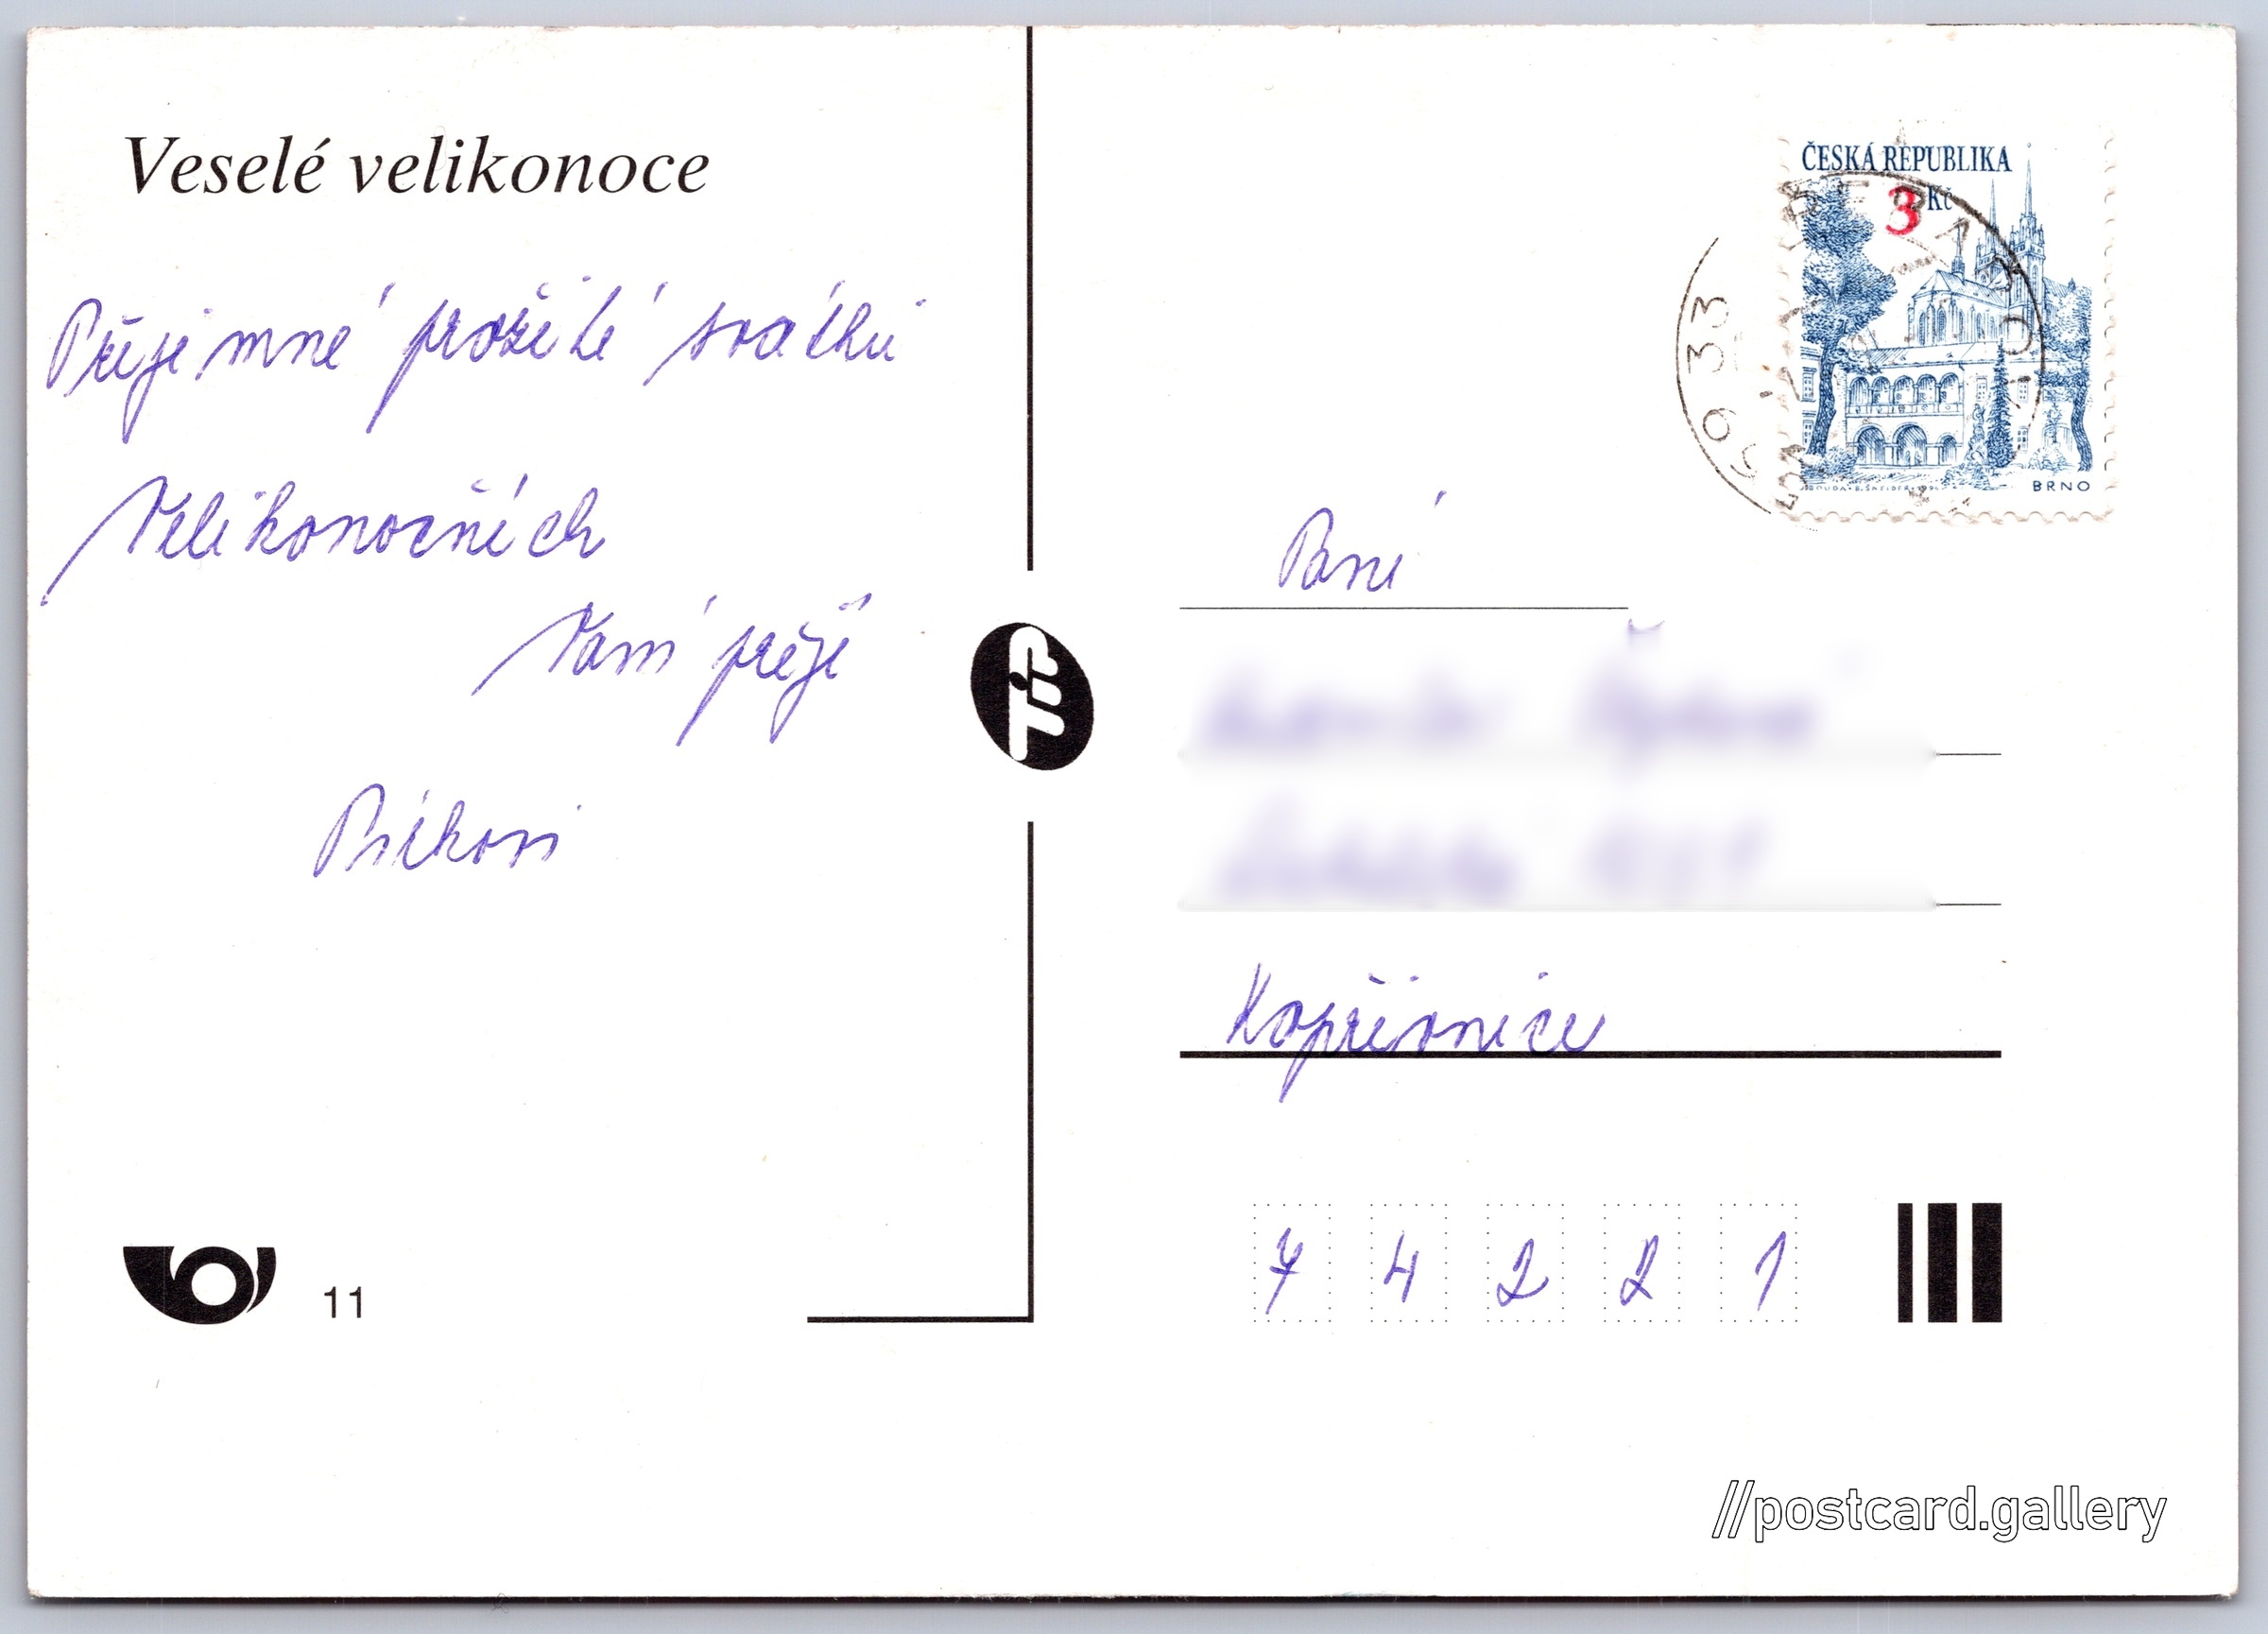 Veselé velikonoce
Příjemné prožité svátků
Velikonočních
Vám přejí
ČESKÁ REPUBLIKA
3 Kč
BRNO
569 33
Paní
Kopřivnice
7 4 2 2 1
TIP
11
//postcard.gallery